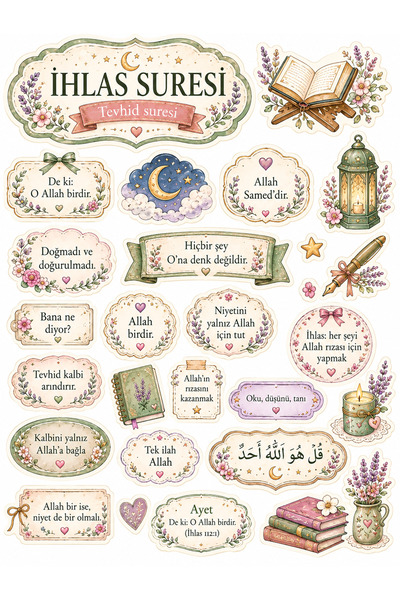 İHLAS SURESİ
Tevhid suresi
De ki:
O Allah birdir.
Allah
Samed'dir.
Doğmadı ve
doğurulmadı.
Hiçbir şey
O'na denk değildir.
Bana ne
diyor?
Allah
birdir.
Niyetini
yalnız Allah
için tut
İhlas: her şeyi
Allah rızası için
yapmak
Tevhid kalbi
arındırır.
Allah'ın
rızasını
kazanmak
Oku, düşünü, tanı
Kalbini yalnız
Allah'a bağla
Tek ilah
Allah
قُلْ هُوَ اللَّهُ أَحَدٌ
Allah bir ise,
niyet de bir olmalı.
Ayet
De ki: O Allah birdir.
(İhlas 112:1)